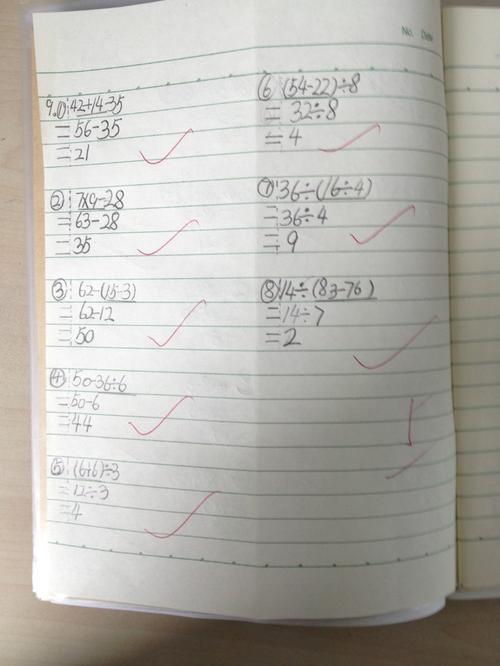 No. Date
9.(1) 42+14-35
=56-35
=21
② 7×9-28
=63-28
=35
③ 62-(15-3)
=62-12
=50
④ 50-36÷6
=50-6
=44
⑤ (6+6)÷3
=12÷3
=4
⑥ (54-22)÷8
=32÷8
=4
⑦ 36÷(16÷4)
=36÷4
=9
⑧ 14÷(83-76)
=14÷7
=2